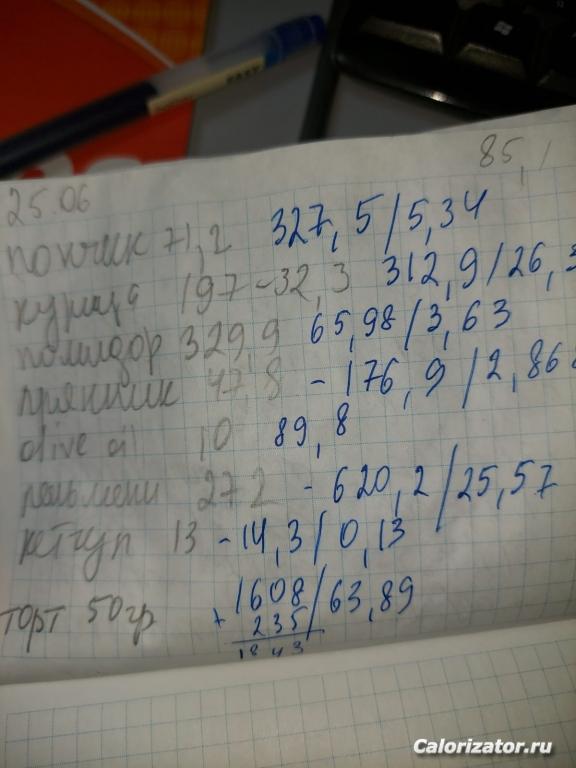 85,1
25.06
пончик 71,2 327,5/5,34
курица 197-32,3 312,9/26,3
помидор 329,9 65,98/3,63
пряник 47,8 - 176,9/2,868
olive oil 10 89,8
пельмени 272 - 620,2/25,57
кетчуп 13 - 14,3/0,13
1608/63,89
торт 50гр + 235
1843
Calorizator.ru